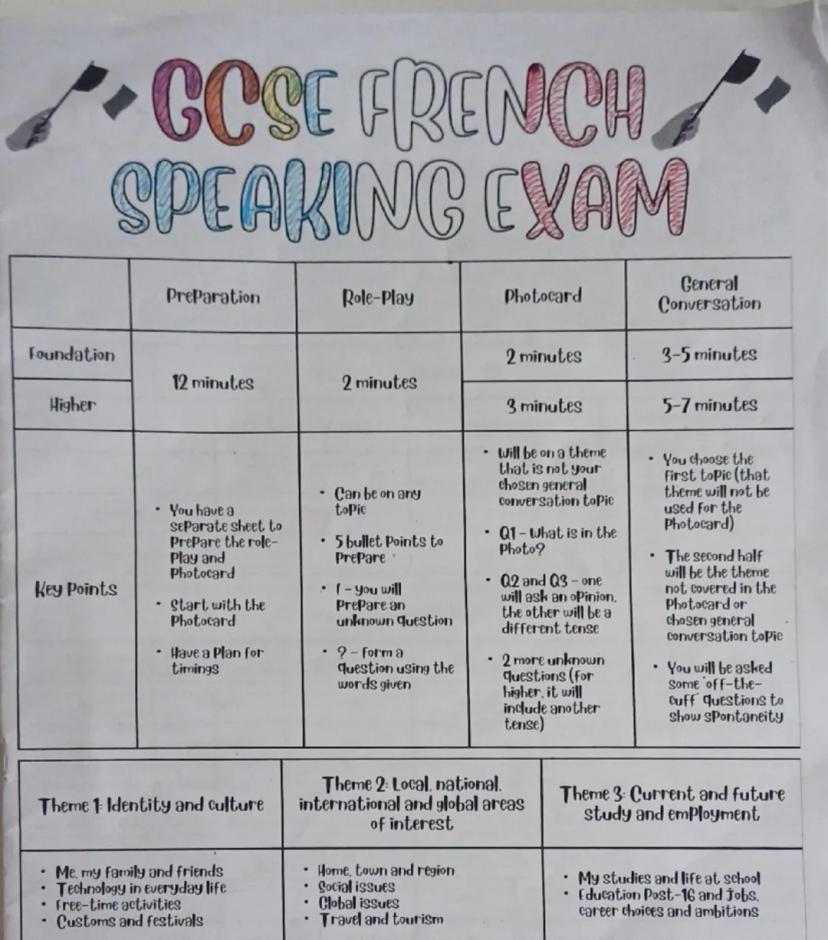 GCSE FRENCH
SPEAKING EXAM
Preparation
Role-Play
Photocard
General
Conversation
Foundation
12 minutes
2 minutes
2 minutes
3-5 minutes
Higher
3 minutes
5-7 minutes
Key Points
• You have a
separate sheet to
prepare the role-
play and
photocard
• Start with the
photocard
• Have a plan for
timings
• Can be on any
topic
• 5 bullet points to
prepare
• ! - you will
prepare an
unknown question
• ? - form a
question using the
words given
• Will be on a theme
that is not your
chosen general
conversation topic
• Q1 - What is in the
photo?
• Q2 and Q3 - one
will ask an opinion,
the other will be a
different tense
• 2 more unknown
questions (for
higher, it will
include another
tense)
• You choose the
first topic (that
theme will not be
used for the
photocard)
• The second half
will be the theme
not covered in the
photocard or
chosen general
conversation topic
• You will be asked
some 'off-the-
cuff' questions to
show spontaneity
Theme 1: Identity and culture
Theme 2: Local, national,
international and global areas
of interest
Theme 3: Current and future
study and employment
• Me, my family and friends
• Technology in everyday life
• Free-time activities
• Customs and festivals
• Home, town and region
• Social issues
• Global issues
• Travel and tourism
• My studies and life at school
• Education post-16 and jobs,
career choices and ambitions